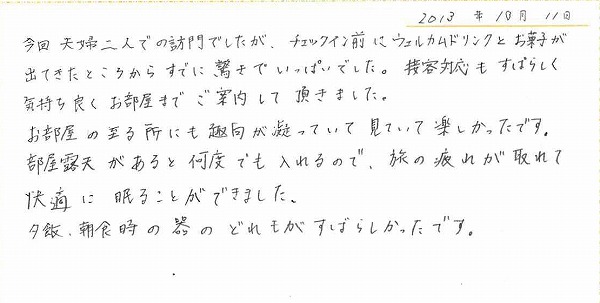 2013 年 10月 11日
今回 夫婦二人での訪問でしたが、チェックイン前にウェルカムドリンクとお菓子が
出てきたところからすでに驚きでいっぱいでした。接客対応もすばらしく
気持ち良くお部屋までご案内して頂きました。
お部屋の至る所にも趣向が凝っていて見ていて楽しかったです。
部屋露天があると何度でも入れるので、旅の疲れが取れて
快適に眠ることができました。
夕飯、朝食時の器のどれもがすばらしかったです。